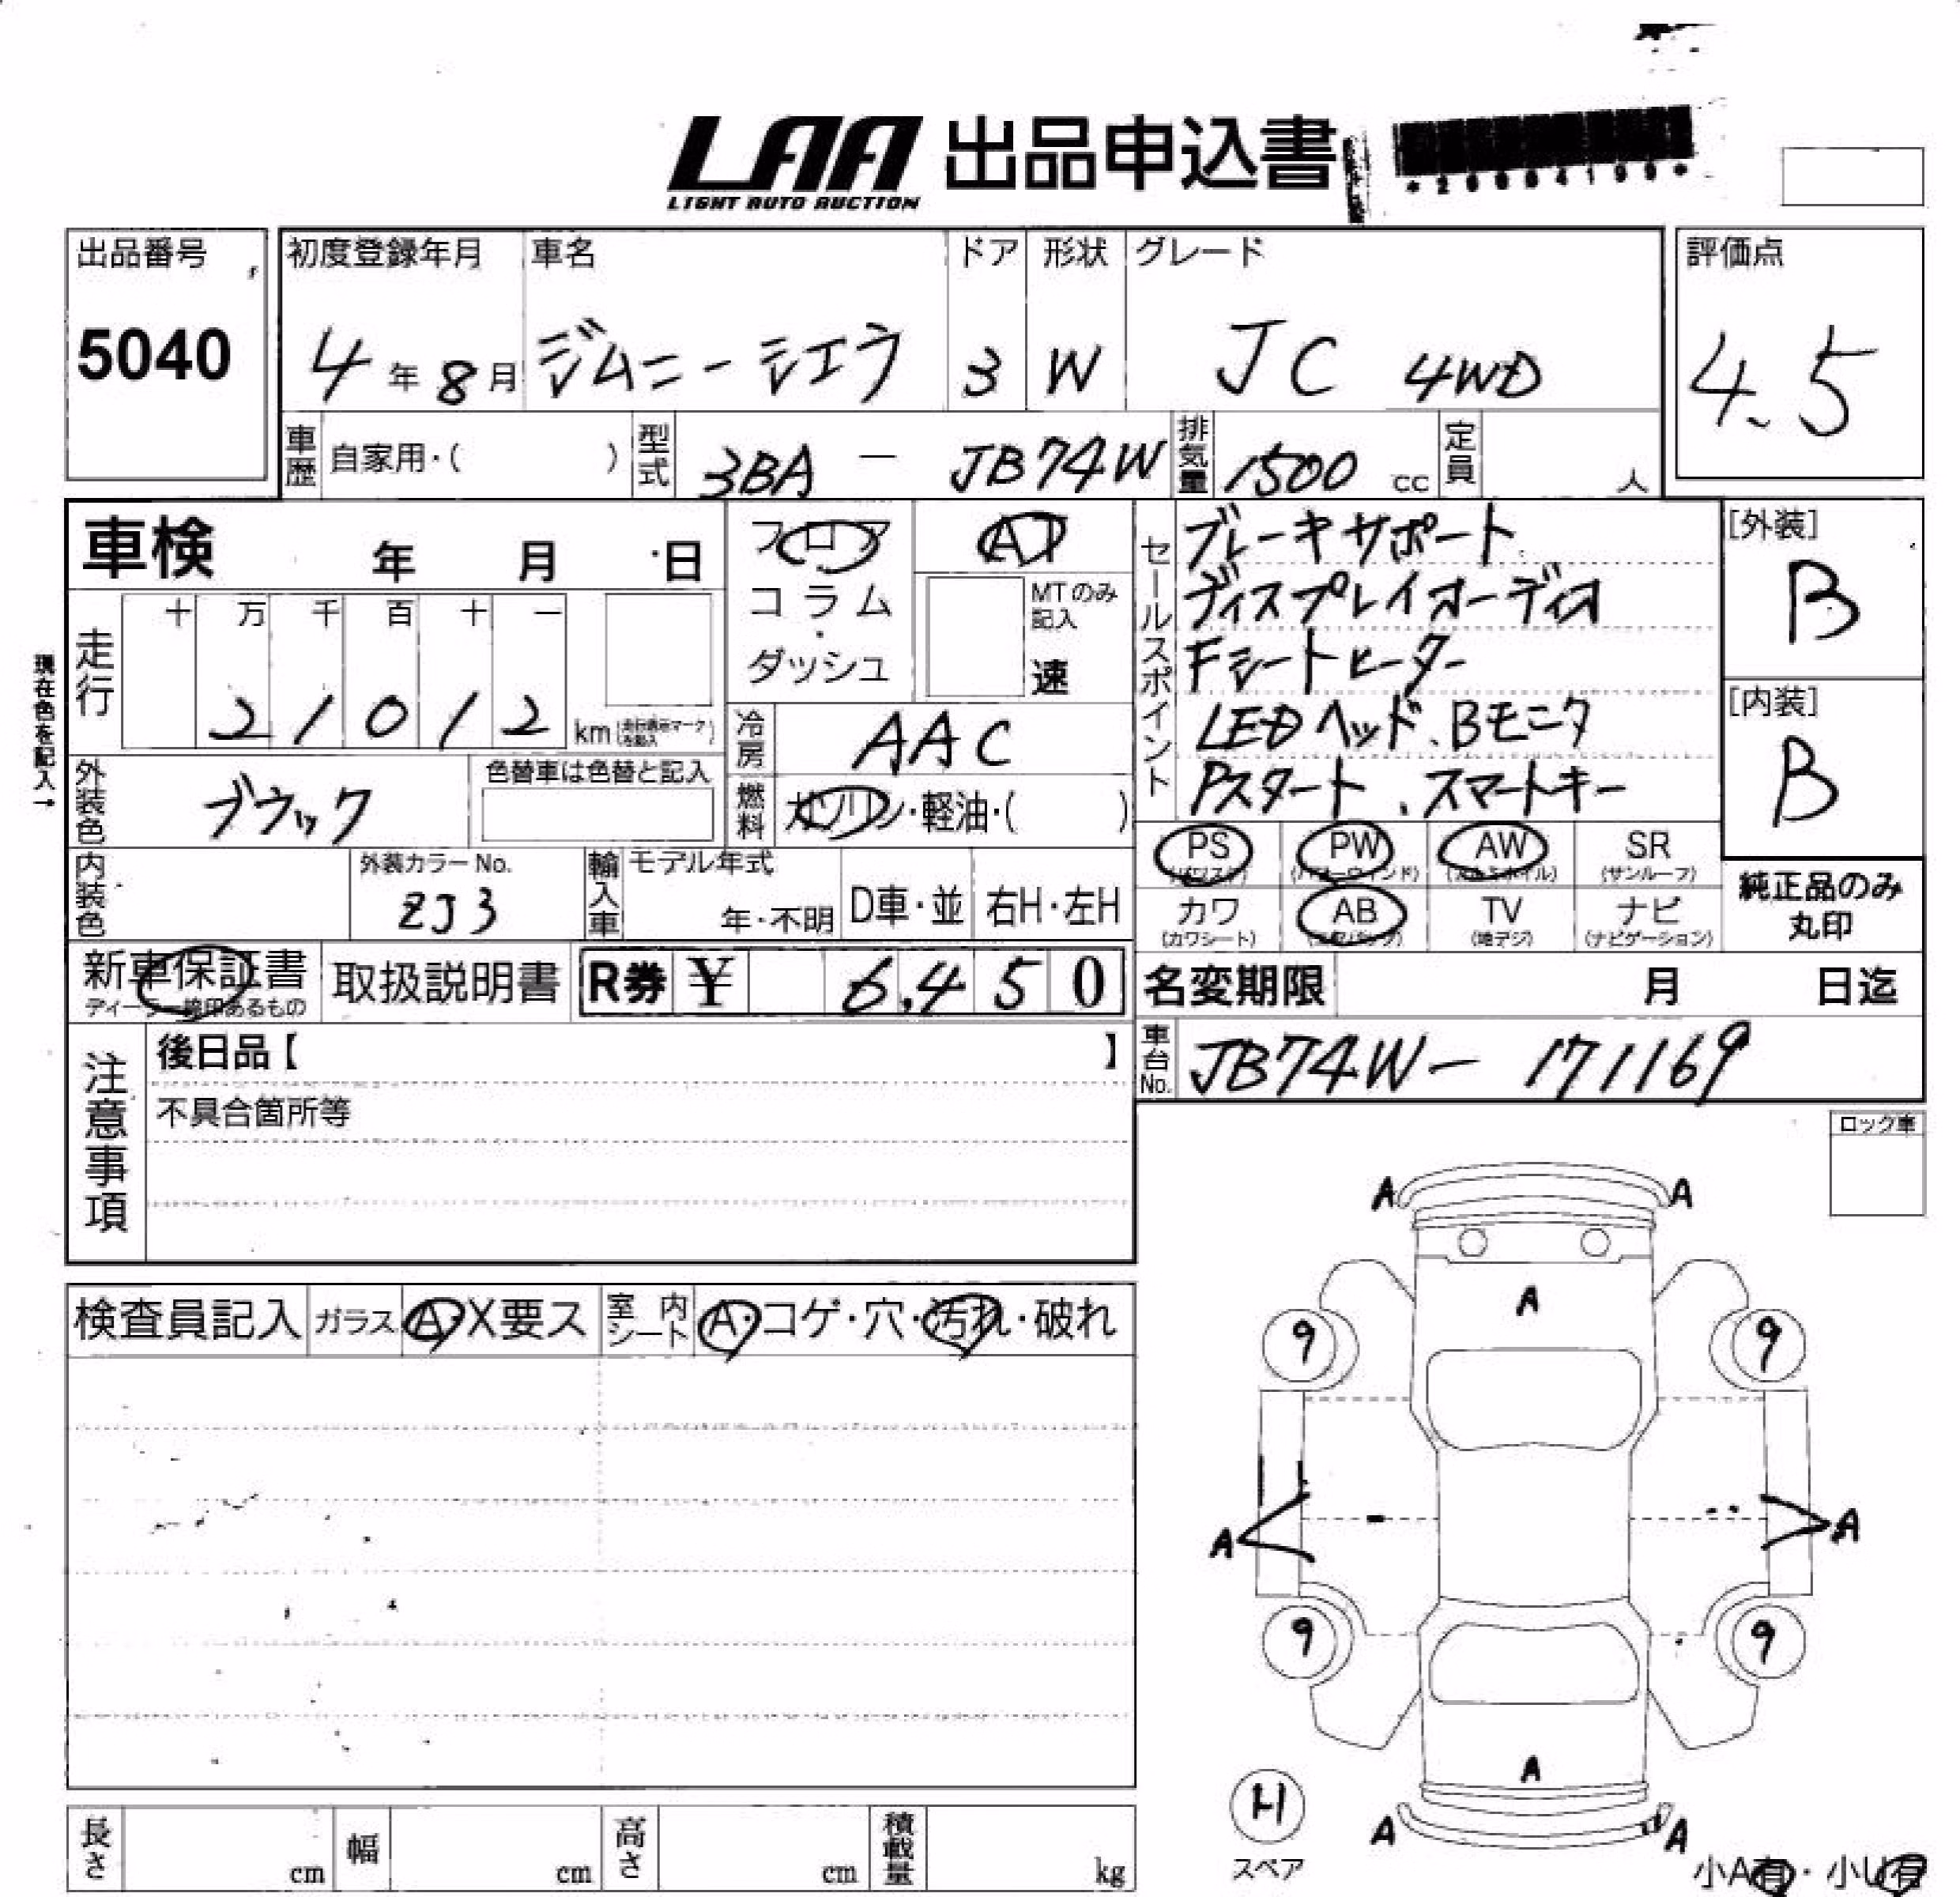 LAA 出品申込書
LIGHT AUTO AUCTION
出品番号 初度登録年月 車名 ドア 形状 グレード 評価点
5040 4年8月 ジムニーシエラ 3 W JC 4WD 4.5
車歴 自家用・( ) 型式 3BA - JB74W 排気量 1500 cc 定員 人
車検 年 月 日
フロア
コラム
・
ダッシュ
AT
MTのみ記入
速
セールスポイント
ブレーキサポート
ディスプレイオーディオ
Fシートヒーター
LEDヘッド、Bモニタ
Pスタート、スマートキー
[外装]
B
[内装]
B
現在色を記入→
走行 十 万 千 百 十 一
21012 km
冷房 AAC
外装色 ブラック 色替車は色替と記入
燃料 ガソリン・軽油・( )
PS AW PW SR
(サンルーフ)
カワ AB TV ナビ
(カワシート) (地デジ) (ナビゲーション)
純正品のみ
丸印
内装色 外装カラーNo. ZJ3 輸入車 モデル年式 年・不明 D車・並 右H・左H
新車保証書 取扱説明書 R券 ¥ 6,450 名変期限 月 日迄
車台No. JB74W- 171169
注意事項
後日品【 】
不具合箇所等
ロック車
検査員記入 ガラス A・X要ス 室内シート A・コゲ・穴・汚れ・破れ
A A
A
9 9
A A
9 9
A
A A
H
スペア
小A有・小U有
長さ cm 幅 cm 高さ cm 積載量 kg